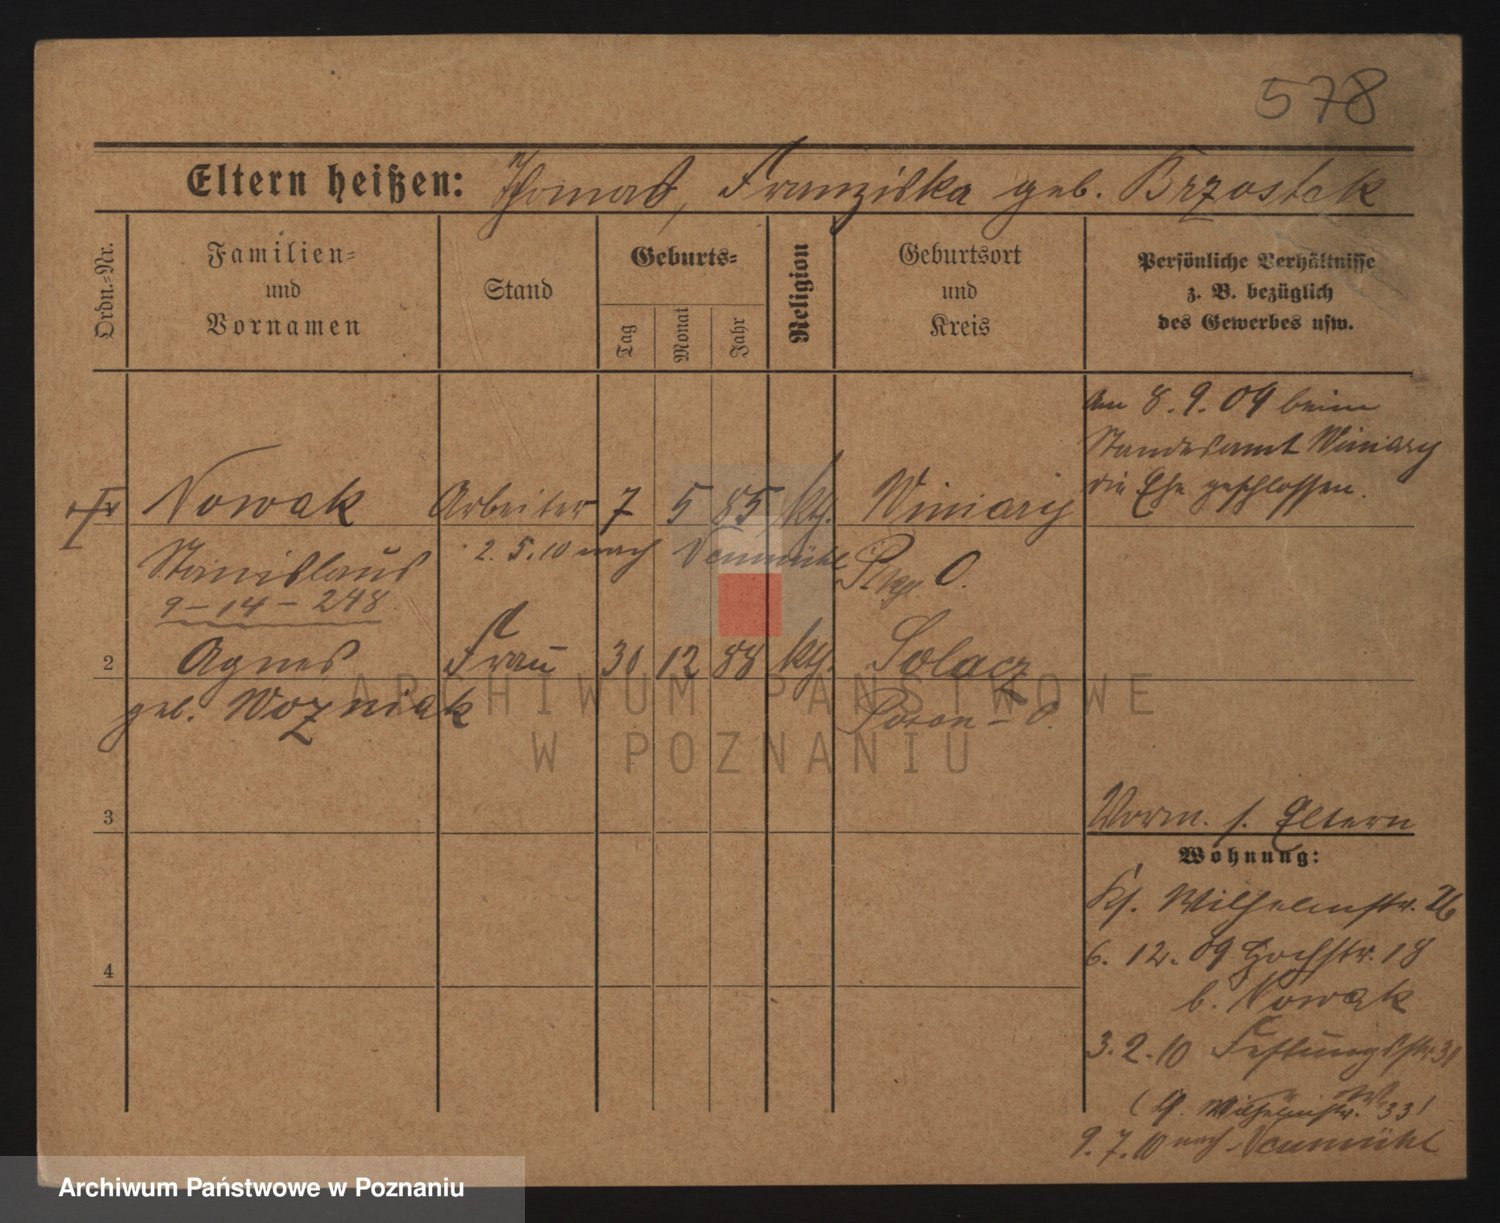 578
Eltern heißen: Thomas, Franziska geb. Brzostek
Ordn.-Nr.
Familien-
und
Vornamen
Stand
Geburts-
Tag
Monat
Jahr
Religion
Geburtsort
und
Kreis
Persönliche Verhältnisse
z. B. bezüglich
des Gewerbes usw.
Am 8.9.09 beim
Standesamt Winiary
die Ehe geschlossen.
Nowak Arbeiter 7 5 85 kth. Winiary
Stanislaus 2.5.10 nach Neumühl O.
9-14-248
2 Agnes Frau 30 12 88 kth. Solacz
geb. Wozniak Posen-O.
3
Vorm. s. Eltern
Wohnung:
Ks. Wilhelmstr. 26
6.12.09 Hochstr. 18
b. Nowak
4
3.2.10 Festungsstr. 31
Wilhelmstr. 33)
9.7.10 nach Neumühl
ARCHIWUM PAŃSTWOWE
W POZNANIU
Archiwum Państwowe w Poznaniu